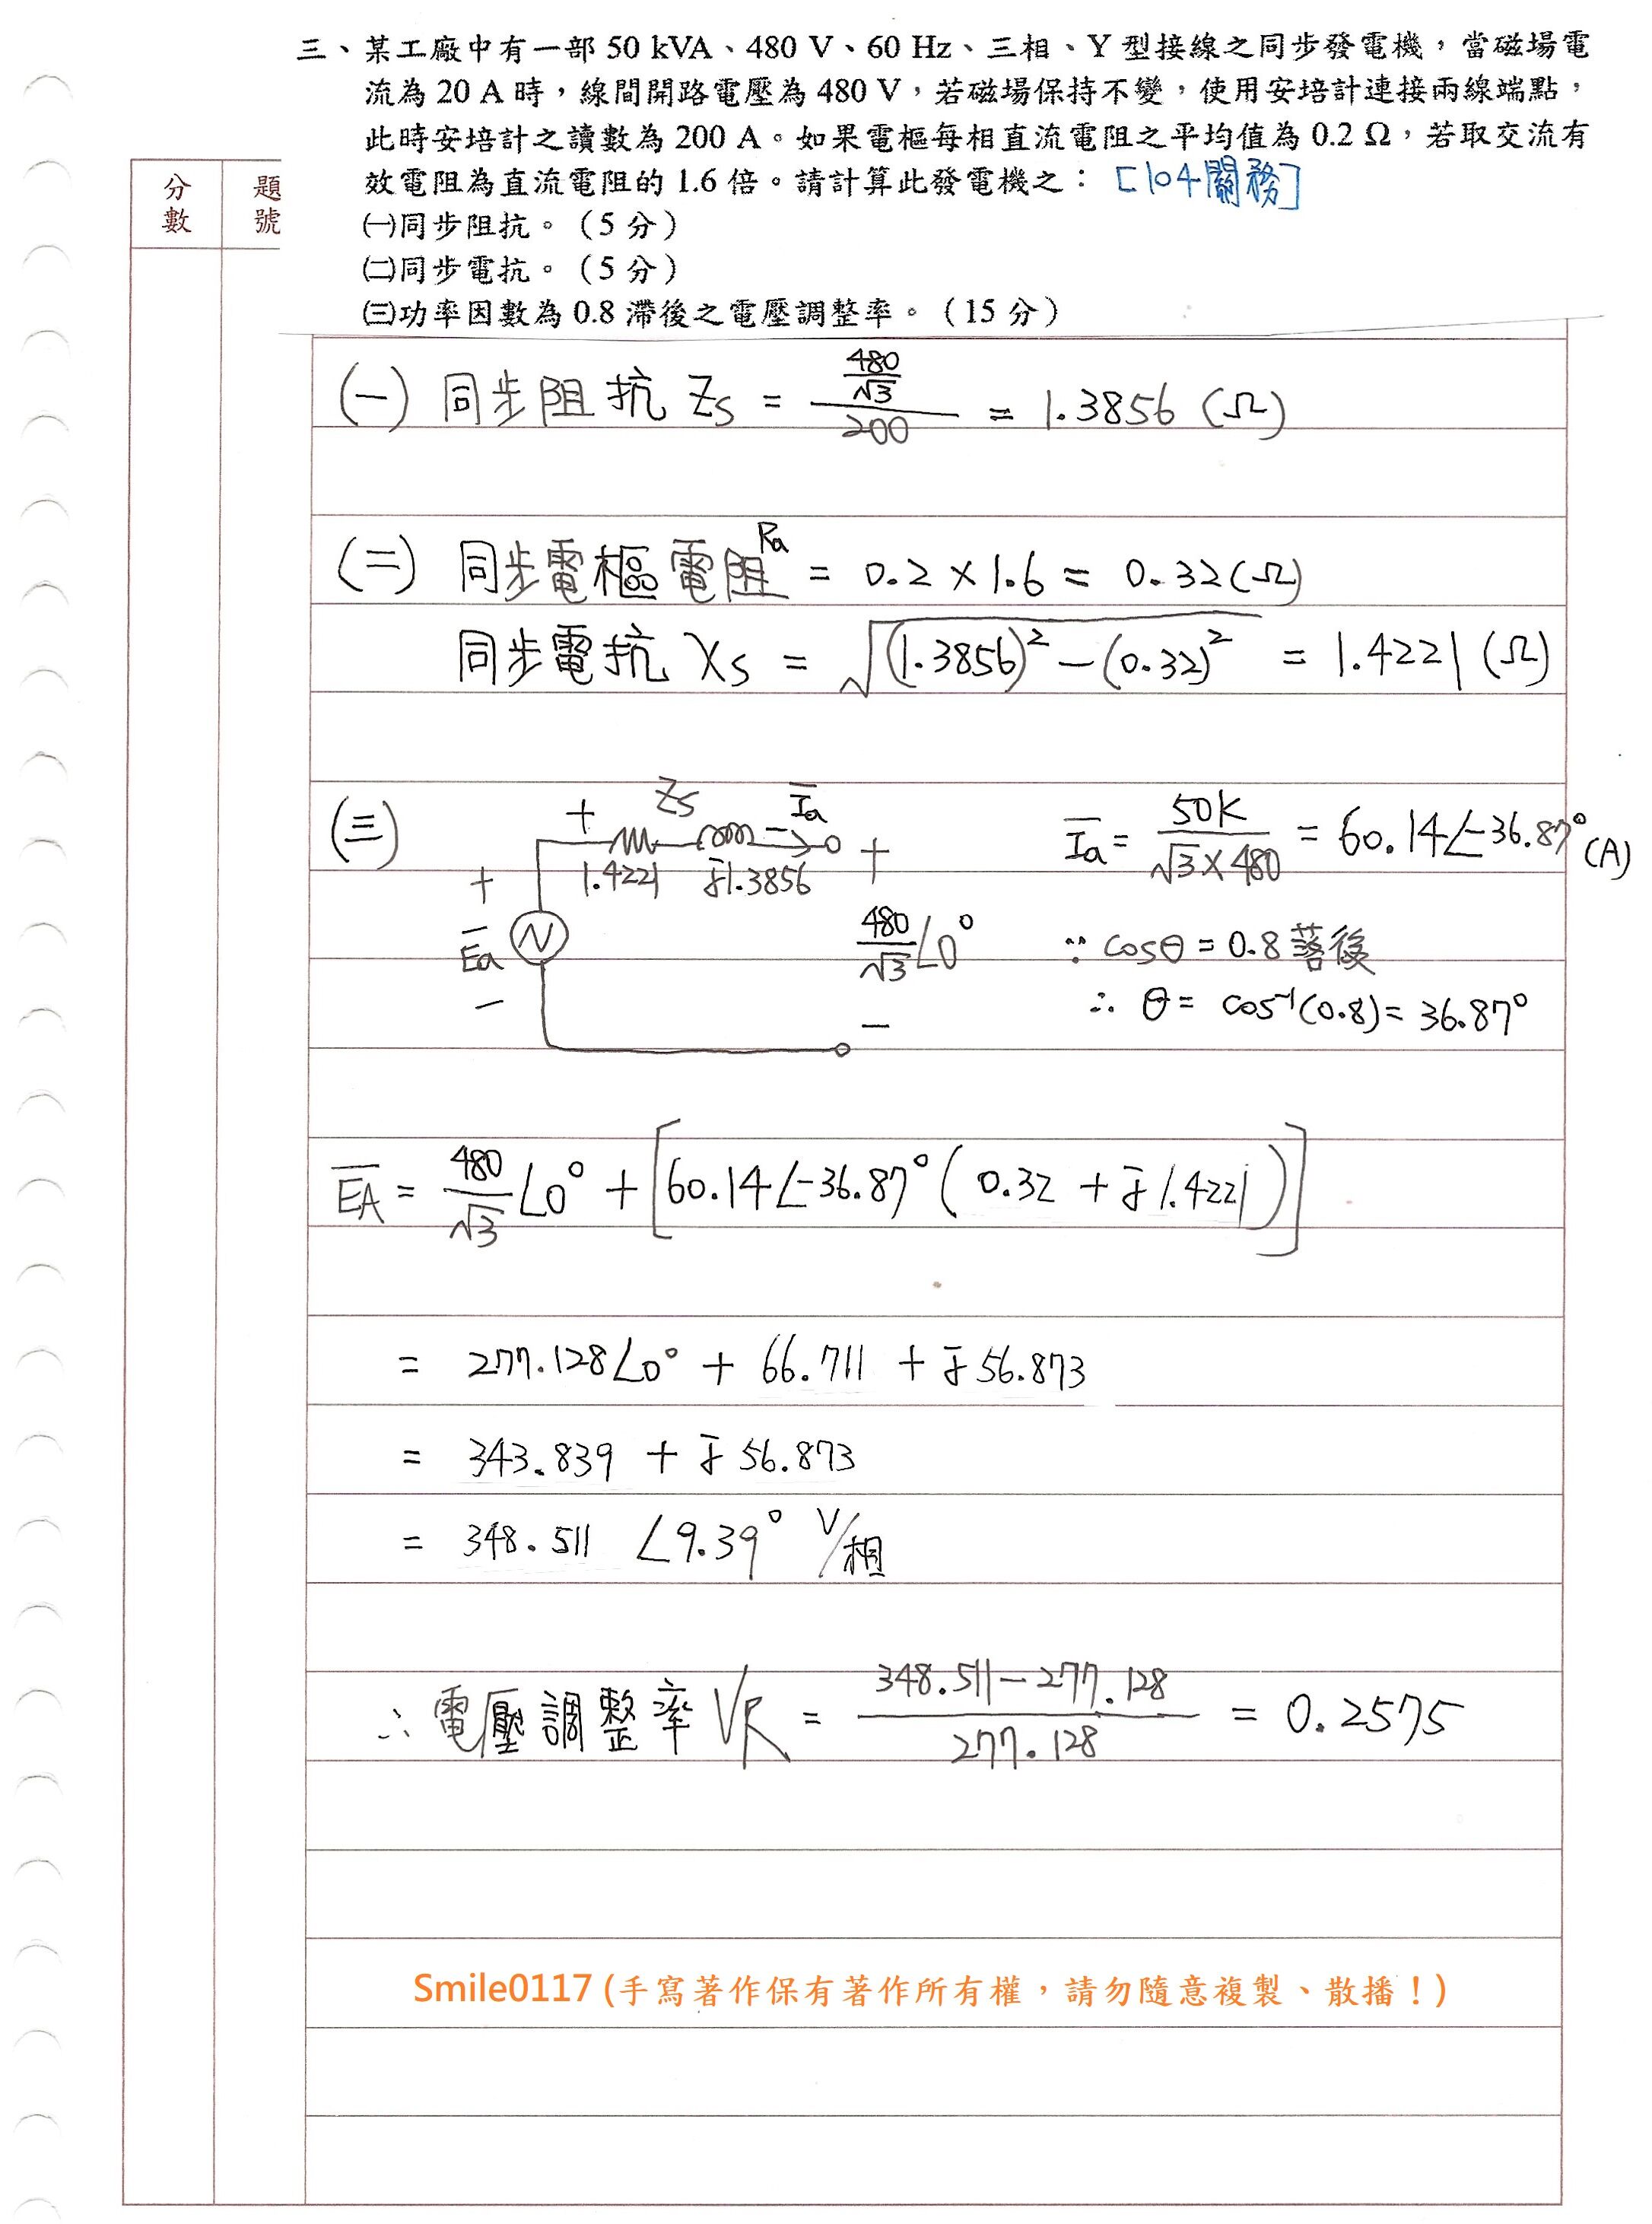 三、某工廠中有一部 50 kVA、480 V、60 Hz、三相、Y 型接線之同步發電機，當磁場電
流為 20 A 時，線間開路電壓為 480 V，若磁場保持不變，使用安培計連接兩線端點，
此時安培計之讀數為 200 A。如果電樞每相直流電阻之平均值為 0.2 Ω，若取交流有
效電阻為直流電阻的 1.6 倍。請計算此發電機之：[104關務]
㈠同步阻抗。（5 分）
㈡同步電抗。（5 分）
㈢功率因數為 0.8 滯後之電壓調整率。（15 分）
分數
題號
(一) 同步阻抗 Zs = (480/√3)/200 = 1.3856 (Ω)
(二) 同步電樞電阻Ra = 0.2 × 1.6 = 0.32(Ω)
同步電抗 Xs = √((1.3856)² − (0.32)²) = 1.4221 (Ω)
(三)
+ Zs − Īa
1.4221 j1.3856 +
+
Ēa
−
N
480/√3∠0°
−
Īa = 50K/(√3×480) = 60.14∠-36.87° (A)
∵ cosθ = 0.8 落後
∴ θ = cos⁻¹(0.8) = 36.87°
ĒA = 480/√3∠0° + [60.14∠-36.87° (0.32 + j1.4221)]
= 277.128∠0° + 66.711 + j56.873
= 343.839 + j56.873
= 348.511 ∠9.39° V/相
∴電壓調整率 VR = (348.511−277.128)/277.128 = 0.2575
Smile0117 (手寫著作保有著作所有權，請勿隨意複製、散播！)